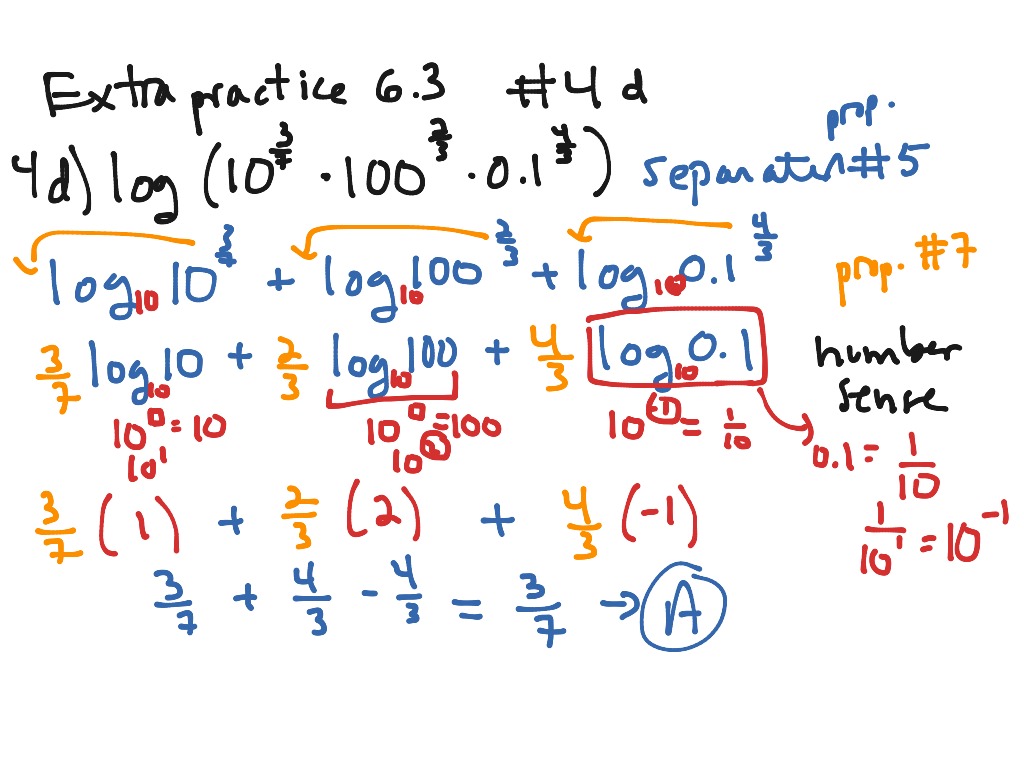 Extra practice 6.3 #4 d
prop.
4d) log (10^(3/7) · 100^(2/3) · 0.1^(4/3)) separation #5
log₁₀ 10^(3/7) + log₁₀ 100^(2/3) + log₁₀ 0.1^(4/3) prop. #7
3/7 log₁₀ 10 + 2/3 log₁₀ 100 + 4/3 log₁₀ 0.1 number
sense
10^() = 10 10^() = 100 10^(-1) = 1/10 0.1 = 1/10
10^1 10^2
3/7 (1) + 2/3 (2) + 4/3 (-1) 1/10^1 = 10^-1
3/7 + 4/3 - 4/3 = 3/7 → A